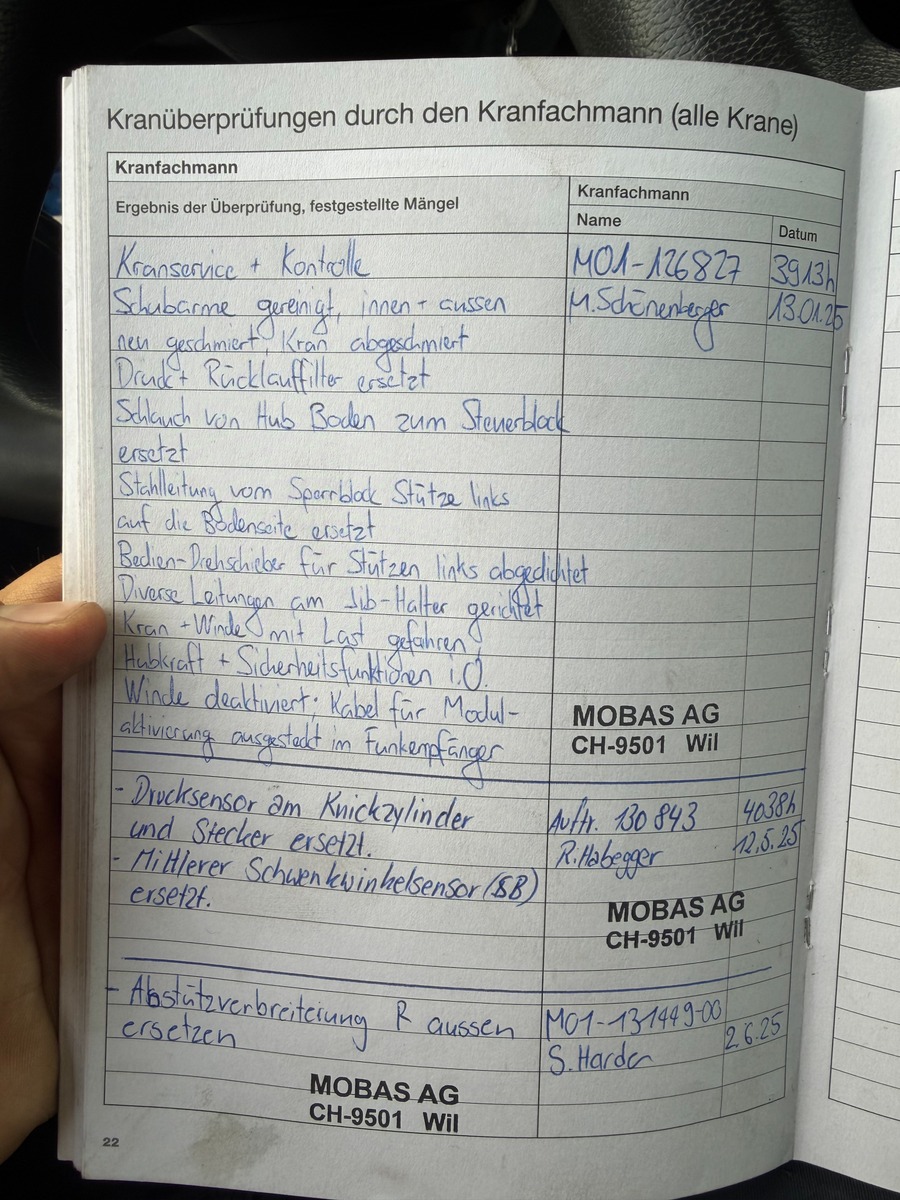 Kranüberprüfungen durch den Kranfachmann (alle Krane)
Kranfachmann
Ergebnis der Überprüfung, festgestellte Mängel
Kranfachmann
Name
Datum
Kranservice + Kontrolle MO1-126827 3913h
Schubarme gereinigt, innen + aussen M.Schönenberger 13.01.25
neu geschmiert, Kran abgeschmiert
Druck + Rücklauffilter ersetzt
Schlauch von Hub Boden zum Steuerblock
ersetzt
Stahlleitung vom Sperrblock Stütze links
auf die Bodenseite ersetzt
Bedien-Drehschieber für Stützen links abgedichtet
Diverse Leitungen am Jib-Halter gerichtet
Kran + Winde mit Last gefahren
Hubkraft + Sicherheitsfunktionen i.O.
Winde deaktiviert: Kabel für Modul-
aktivierung ausgesteckt im Funkempfänger
MOBAS AG
CH-9501 Wil
- Drucksensor am Knickzylinder Auftr. 130 843 4038h
und Stecker ersetzt. R.Habegger 12.5.25
- Mittlerer Schwenkwinkelsensor (SB)
ersetzt.
MOBAS AG
CH-9501 Wil
- Abstützverbreiterung R aussen MO1-131449-00
ersetzen S. 2.6.25
MOBAS AG
CH-9501 Wil
22